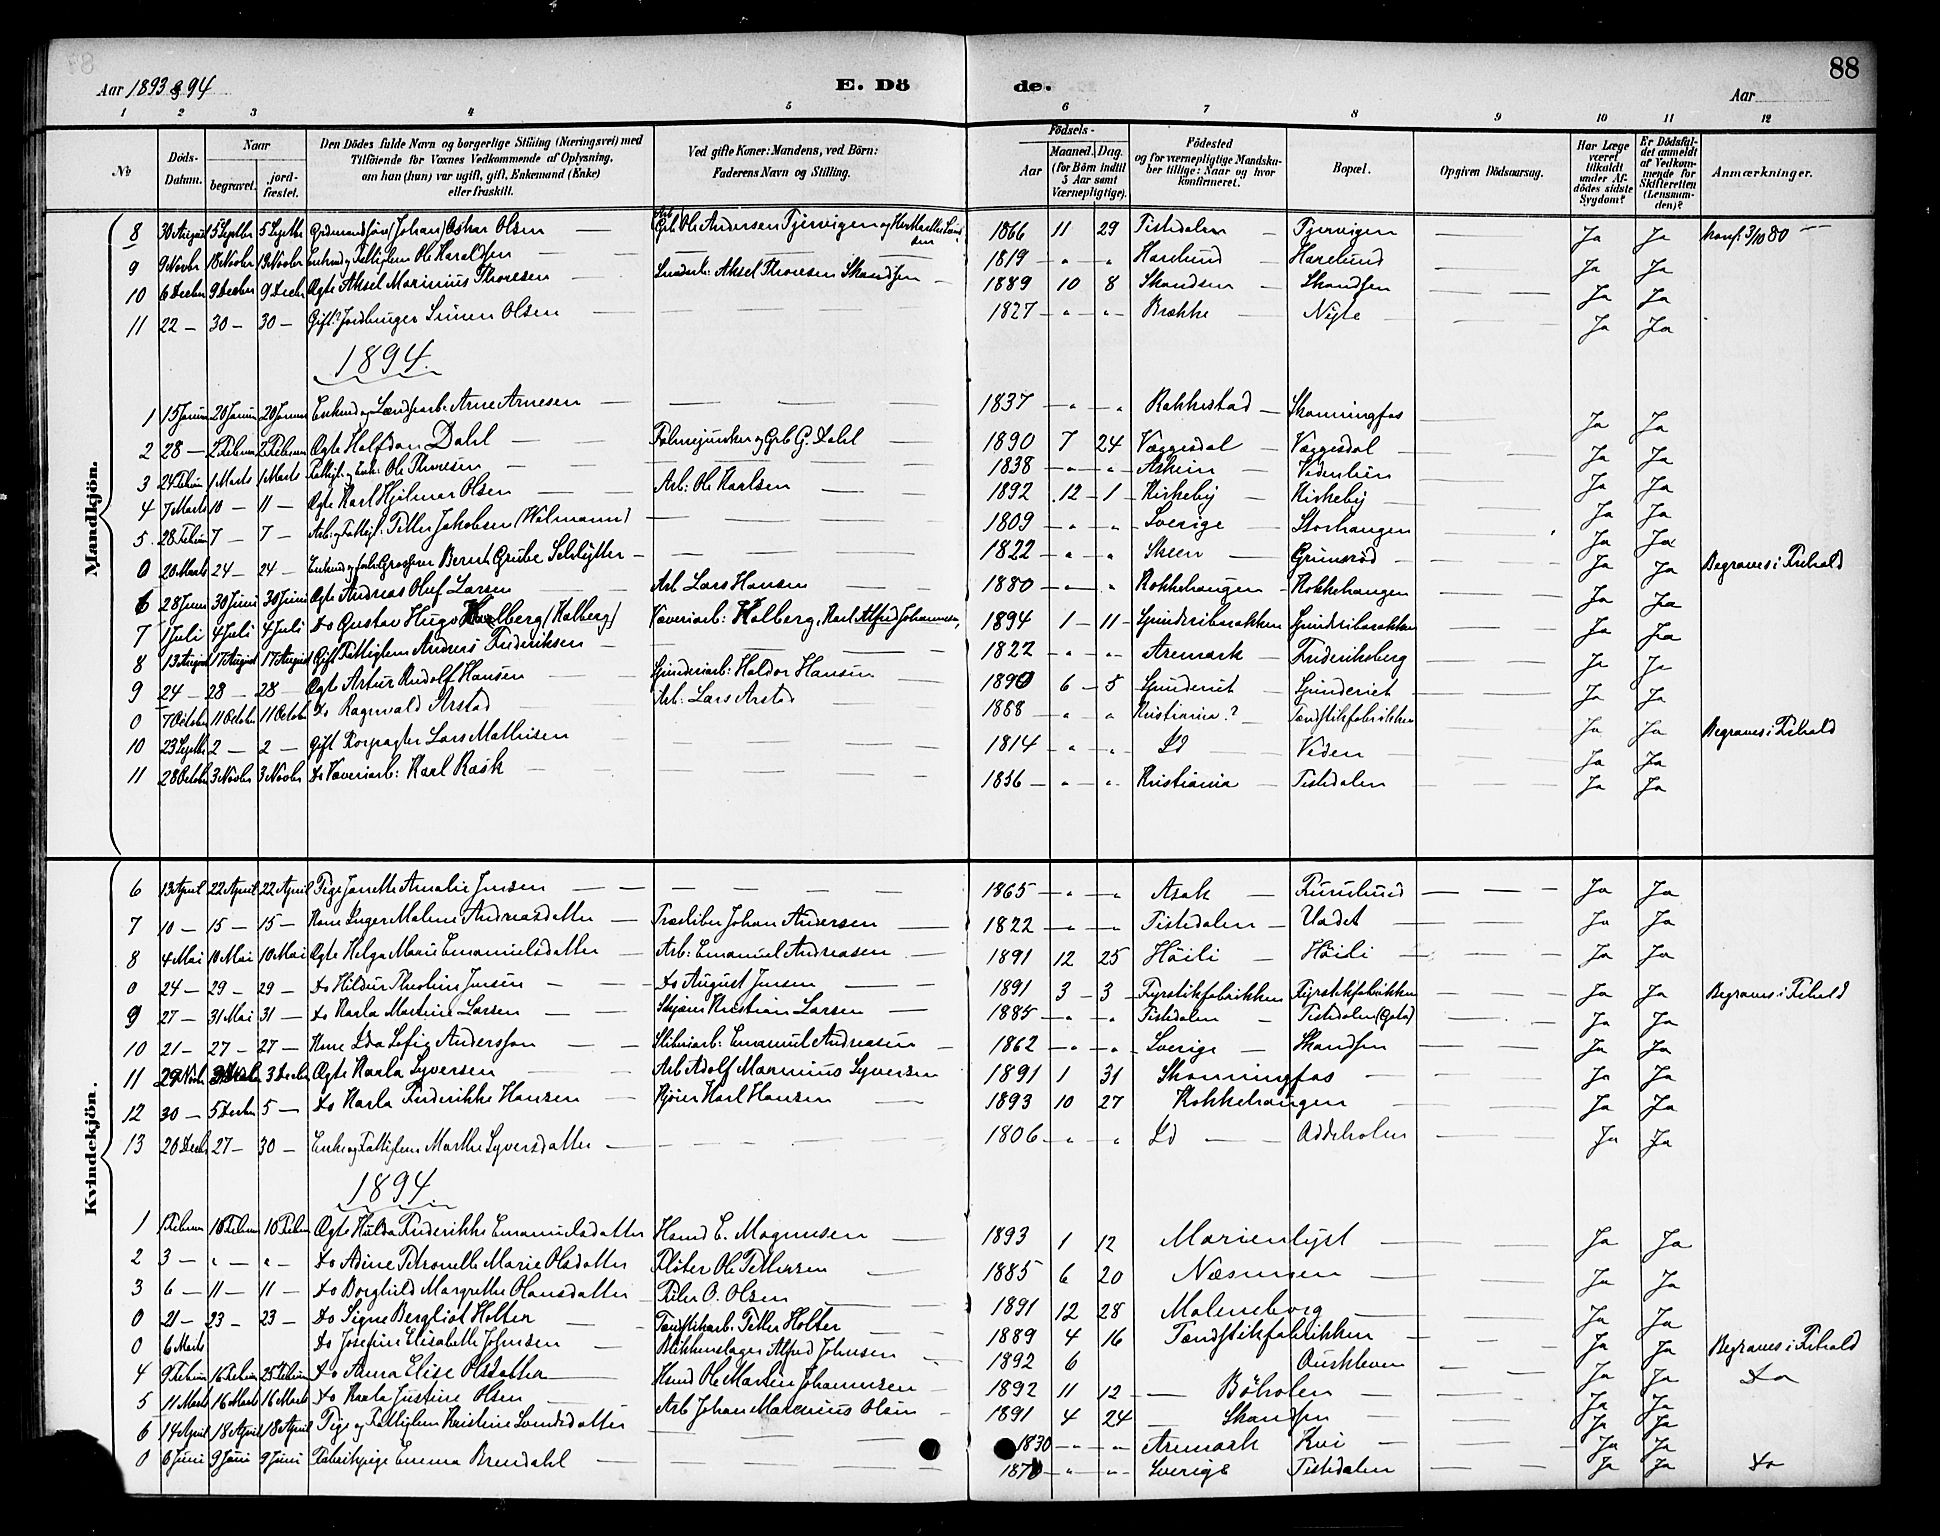 88
Aar 1893 & 94
E. Dö
de.
Aar
1 2 3 4 5 6 7 8 9 10 11 12
No
Döds-Datum.
Naar
begravet.
jord-fæstet.
Den Dödes fulde Navn og borgerlige Stilling (Næringsvei) med
Tilföiende for Voxnes Vedkommende af Oplysning,
om han (hun) var ugift, gift, Enkemand (Enke)
eller fraskilt.
Ved gifte Koner: Mandens, ved Börn:
Faderens Navn og Stilling.
Födsels-
Aar
Maaned. Dag.
(for Börn indtil 5 Aar samt Værnepligtige).
Födested
og for værnepligtige Mandska-
ber tillige: Naar og hvor
konfirmeret.
Bopæl.
Opgiven Dödsaarsag.
Har Læge været tilkaldt under Af-dödes sidste Sygdom?
Er Dödsfal-det anmeldt af Vedkom-mende for Skifteretten (Lensman-den)?
Anmærkninger.
Mandkjön.
8 30 August 5 Septbr 5 Septbr (Johan) Oskar Olsen — Ole Andersen Tjervigen og 1866 11 29 Tistedalen — Tjervigen Ja Ja konf. 3/10 80
9 9 Novbr 13 Novbr 13 Novbr Enkmd og Fattiglem Ole Haraldsen — 1819 — " — " Harelund — Harelund Ja Ja
10 6 Decbr 9 Decbr 9 Decbr Ægte Aksel Marinius Thoresen — Aksel Thoresen Skandsen — 1889 10 8 Skandsen — Skandsen Ja Ja
11 22 — 30 — 30 — Gift Jordbruger Simen Olsen — 1827 — " — " Brække — Ja Ja
1894.
1 15 Januar 20 Januar 20 Januar Enkmd og Arne Arnesen — 1837 — " — " Rakkestad — Skonningfos Ja Ja
2 28 — 2 Februar 2 Februar Ægte Halfdan Dahl — G. Dahl 1890 7 24 Væggesdal — Væggesdal Ja Ja
3 24 Februar 1 Marts 1 Marts Ole Thoresen — 1838 — " — " Askim — Vedenlien Ja Ja
4 7 Marts 10 — 11 — Ægte Karl Hjelmer Olsen — Arb: Ole Karlsen — 1892 12 — 1 Kirkeby — Kirkeby Ja Ja
5 28 Februar 7 — 7 — Arb: og Fattigl: Petter Jakobsen (Wilmann) — 1809 — " — " Sverige — Storhaugen Ja Ja
0 20 Marts 24 — 24 — Enkmd og Bernt Grube — 1822 — " — " Skeen — Grimsrød Ja Ja Begraves i Frhald
6 28 Juni 30 Juni 30 Juni Ægte Andreas Oluf Larsen — Arb. Lars Hansen — 1880 — " — " Kokkehaugen — Kokkehaugen Ja Ja
7 1 Juli 4 Juli 4 Juli Do Gustav Hugo Halberg (Kalberg) Væveriarb: Halberg, Karl Alfred Johannesen 1894 1 — 11 — Ja Ja
8 13 August 17 August 17 August Gift Fattiglem Anders Frederiksen — 1822 — " — " Aremark — Frederiksberg Ja Ja
9 24 — 28 — 28 — Ægte Artur Rudolf Hansen — Spinderiarb: Haldor Hansen — 1890 6 — 5 Spinderiet — Spinderiet Ja Ja
0 7 October 11 October 11 October Do Ragnvald Arstad — Arb: Lars Arstad — 1888 " " Kristiania? — Tændstikfabrikken Ja Ja Begraves i Frhald
10 23 Septbr 2 — 2 — Gift Lars Mathisen — 1814 — " " Id — Veden — Ja Ja
11 28 October 3 Novbr 3 Novbr Do Væveriarb: Karl Rask — 1856 — " " Kristiania — Tistedalen Ja Ja
Kvindekjön.
6 13 April 22 April 22 April Pige Janette Amalie Jensen — 1865 — " — " Asak — Furulund Ja Ja
7 10 — 15 — 15 — Kone Inger Malene Andreasdatter — Træsliber Johan Andersen — 1822 — " — " Tistedalen — Vadet Ja Ja
8 4 Mai 10 Mai 10 Mai Ægte Helga Marie Emanuelsdatter — Arb: Emanuel Andreasen — 1891 12 25 Höili — Höili Ja Ja
0 24 — 29 — 29 — Do Hildur Theoline Jensen — Do August Jensen — 1891 3 — 3 — Fyrstikfabrikken Fyrstikfabrikken Ja Ja Begraves i Frhald
9 27 — 31 Mai 31 — Do Karla Martine Larsen — Kristian Larsen — 1885 — " " Tistedalen — Tistedalen Ja Ja
10 21 — 27 — 27 — Kone Ida Sofie Andersson — Sliberiarb: Emanuel Andreasen — 1862 — " " Sverige — Skandsen Ja Ja
11 29 Novbr 3 Decbr 3 Decbr Ægte Karla Syversen — Arb Adolf Marinius Syversen 1891 1 31 Skonningfos Ja Ja
12 30 — 5 Decbr 5 — Do Karla Frederikke Hansen — Kjører Karl Hansen 1893 10 27 Kokkehaugen — Ja Ja
13 20 Decbr 27 — 30 — Enke og Fattiglem Marthe Syversdatter — 1806 — " " Id — Addeholen Ja Ja
1894.
1 1 Februar 10 Februar 10 Februar Ægte Hulda Frederikke Emanuelsdatter Hsmd E. Magnusen — 1893 1 12 Marienlyst — Ja Ja
2 3 — " — " — Do Adine Petronelle Marie Olsdatter Fløter Ole Pettersen — 1885 6 20 Næsmsen — Ja Ja
3 6 — 11 — 11 — Do Borghild Margrethe Olausdatter Filer O. Olsen — 1891 12 28 Maleneborg — Ja Ja
0 21 — 23 — 23 — Do Signe Bergliot Holter — Tændstikarb. Petter Holter — 1889 4 16 Tændstikfabrikken Ja Ja Begraves i Frhald
0 6 Marts Do Josefine Elisabeth Johnsen — Blikkenslager Alfred Johnsen — 1892 6 Ja Ja Do
4 9 Februar 16 Februar 25 Februar Do Anna Elise Olsdatter Hsmd Ole Martin Johannesen — 1892 11 12 — Böholen — Ja Ja
5 11 Marts 16 Marts 16 Marts Do Karla Justine Olsen — Arb Johan Marenius Olsen — 1891 4 24 — Skandsen — Ja Ja
6 14 April 18 April 18 April Pige og Fattiglem Kristine Svendsdatter — 1830 — " — " Aremark Kvi — Ja Ja
0 6 Juni 9 Juni 9 Juni Fabrikpige Emma Brendahl — 1870 — " — " Sverige Tistedalen Ja Ja Do